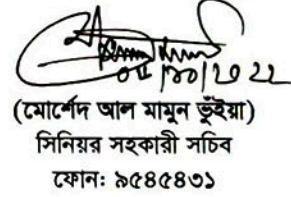 (মোর্শেদ আল মামুন ভুঁইয়া)
সিনিয়র সহকারী সচিব
ফোনঃ ৯৫৪৫৪৩১